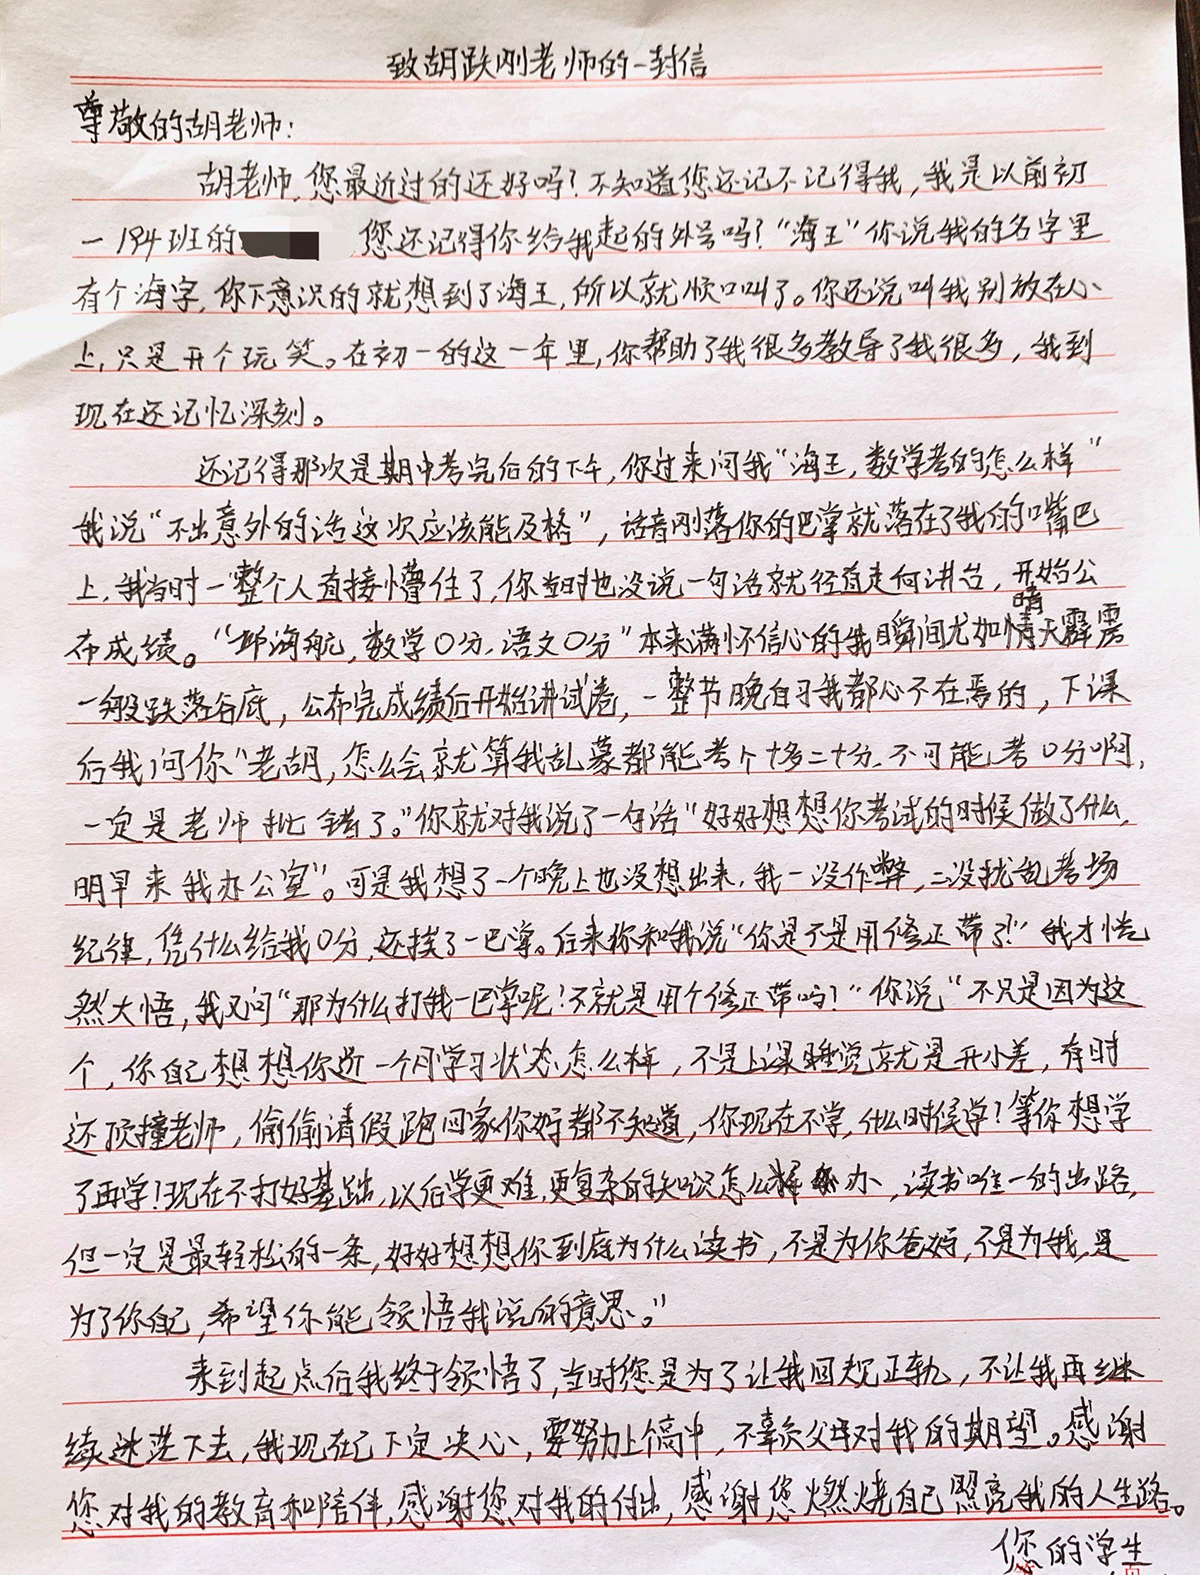 致胡跃刚老师的一封信
尊敬的胡老师:
胡老师,您最近过的还好吗?不知道您还记不记得我,我是以前初
一194班的 您还记得你给我起的外号吗?“海王”你说我的名字里
有个海字,你下意识的就想到了海王,所以就顺口叫了。你还说叫我别放在心
上,只是开个玩笑。在初一的这一年里,你帮助了我很多教导了我很多,我到
现在还记忆深刻。
还记得那次是期中考完后的下午,你过来问我“海王,数学考的怎么样”
我说“不出意外的话这次应该能及格”,话音刚落你的巴掌就落在了我的嘴巴
上,我当时一整个人直接懵住了,你当时也没说一句话就径直走向讲台,开始公
布成绩。“邱海航,数学0分,语文0分”本来满怀信心的我瞬间尤如晴天霹雳
一般跌落谷底,公布完成绩后开始讲试卷,一整节晚自习我都心不在焉的,下课
后我问你“老胡,怎么会就算我乱蒙都能考个十多二十分,不可能考0分啊,
一定是老师批错了。”你就对我说了一句话“好好想想你考试的时候做了什么,
明早来我办公室”。可是我想了一个晚上也没想出来,我一没作弊,二没扰乱考场
纪律,凭什么给我0分,还挨了一巴掌。后来你和我说“你是不是用修正带了?”我才恍
然大悟,我又问“那为什么打我一巴掌呢!不就是用个修正带吗?”你说“不只是因为这
个,你自己想想你近一个月学习状态怎么样,不是上课睡觉就是开小差,有时
还顶撞老师,偷偷请假跑回家你好都不知道,你现在不学,什么时候学?等你想学
了再学!现在不打好基础,以后学更难,更复杂的知识怎么办,读书唯一的出路,
但一定是最轻松的一条,好好想想你到底为什么读书,不是为你爸妈,不是为我,是
为了你自己,希望你能领悟我说的意思。”
来到起点后我终于领悟了,当时您是为了让我回规正轨,不让我再继
续迷茫下去,我现在已下定决心,要努力上高中,不辜负父母对我的期望。感谢
您对我的教育和陪伴,感谢您对我的付出,感谢您燃烧自己照亮我的人生路。
您的学生